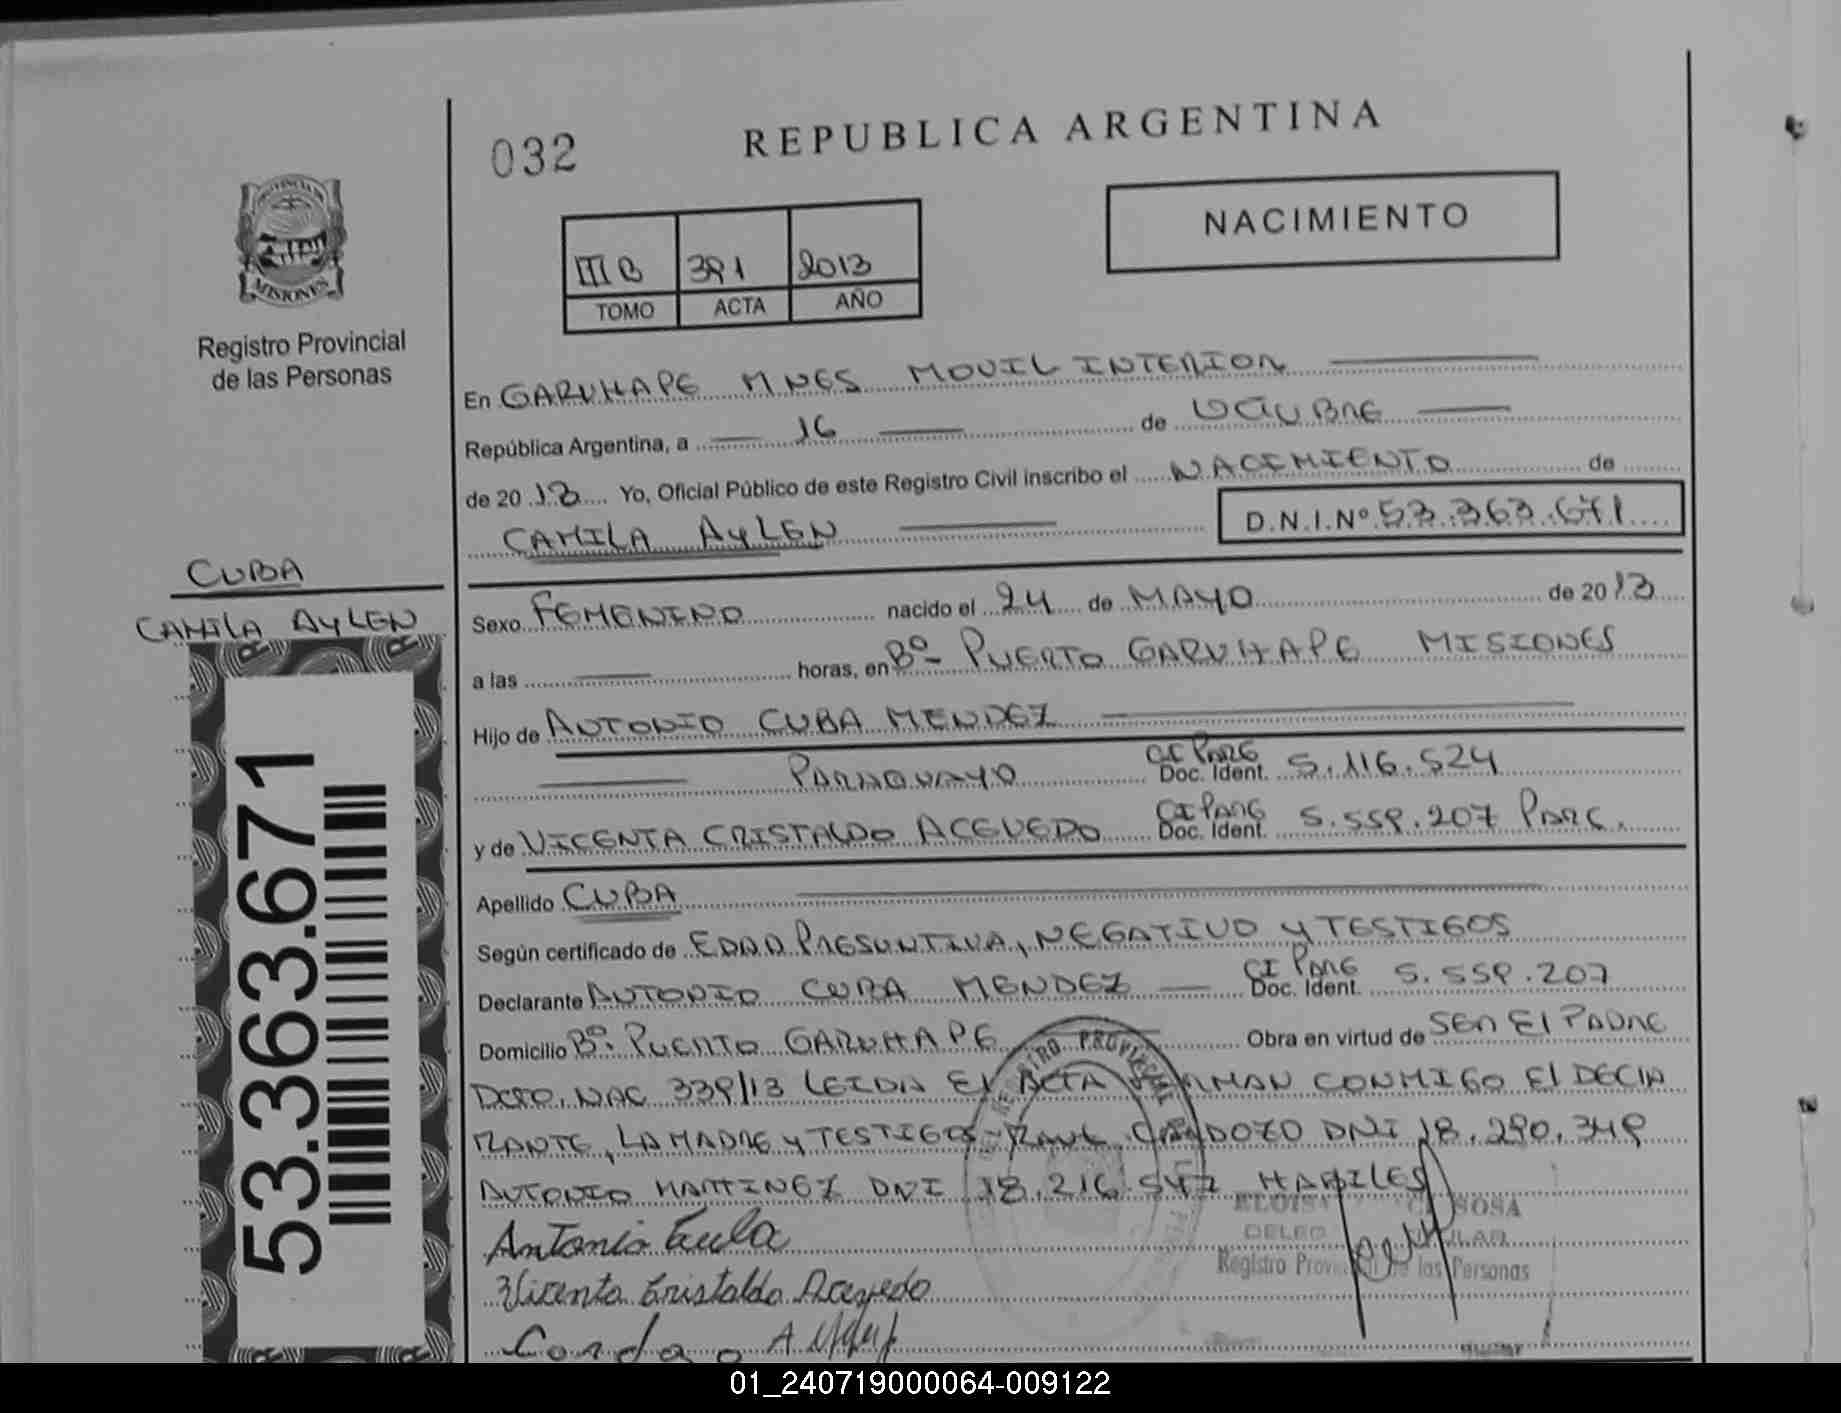 032
REPUBLICA ARGENTINA
NACIMIENTO
III B 391 2013
TOMO ACTA AÑO
PROVINCIA DE
MISIONES
Registro Provincial
de las Personas
En GARUHAPE MNES MOVIL INTERIOR
República Argentina, a 16 de OCTUBRE
de 20 13 Yo, Oficial Público de este Registro Civil inscribo el NACIMIENTO de
CAMILA AYLEN D.N.I.Nº 53.363.671
CUBA
CAMILA AYLEN
53.363.671
Sexo FEMENINO nacido el 24 de MAYO de 20 13
a las horas, en Bº PUERTO GARUHAPE MISIONES
Hijo de ANTONIO CUBA MENDEZ
PARAGUAYO CI PARG Doc. Ident. 5.116.524
y de VICENTA CRISTALDO ACEVEDO CI PARG Doc. Ident. 5.559.207 PARG.
Apellido CUBA
Según certificado de EDAD PRESUNTIVA, NEGATIVO Y TESTIGOS
Declarante ANTONIO CUBA MENDEZ CI PARG Doc. Ident. 5.559.207
Domicilio Bº PUERTO GARUHAPE Obra en virtud de SER El PADRE
DCTO. NAC 339/13 LEIDA El ACTA FIRMAN CONMIGO El DECLA
RANTE, LA MADRE Y TESTIGOS - RAUL CARDOZO DNI 18.290.349
ANTONIO MARTINEZ DNI 18.216.547 HABILES
REGISTRO PROVINCIAL
Antonio Cuba
Vicenta Cristaldo Acevedo
ELOISA SOSA
Registro Provincial de las Personas
01_240719000064-009122